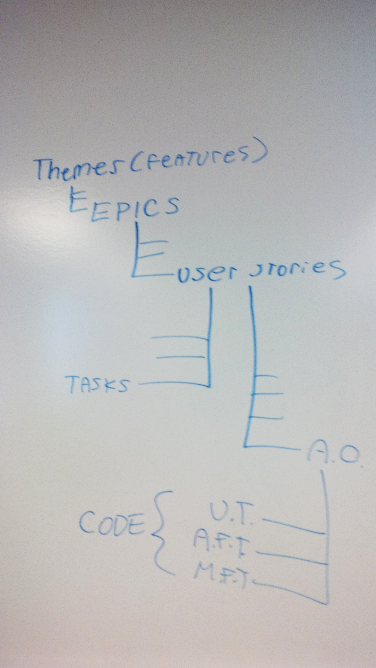 Themes (FEATURES)
EPICS
user stories
TASKS
A.O.
U.T.
CODE
A.F.T
M.F.T.